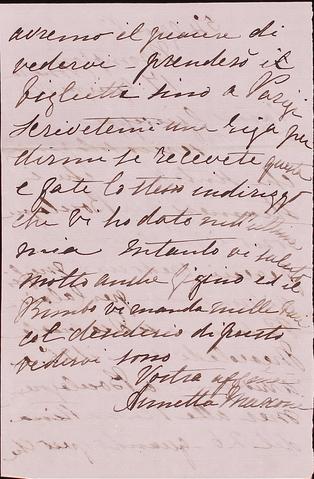 avremo il piacere di
vedervi - prenderò il
biglietto sino a Parigi
scrivetemi una riga per
dirmi se recevete questa
e fate lo stesso indirizzo
che vi ho dato nell'ultima
mia Intanto vi saluta
molto anche Gigino ed il
Bimbo vi manda mille baci
col desiderio di presto
vedervi sono
Vostra affma
Annetta